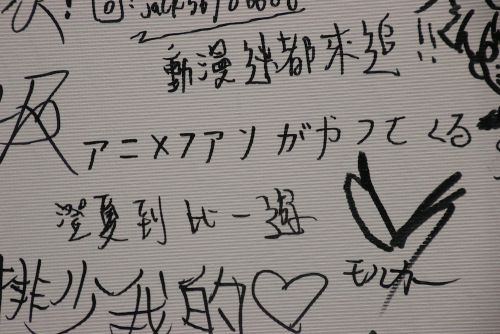 動漫迷都來追!!
アニメファンがやってくる
澄夏到比一遊
モルカー
排少我的♡